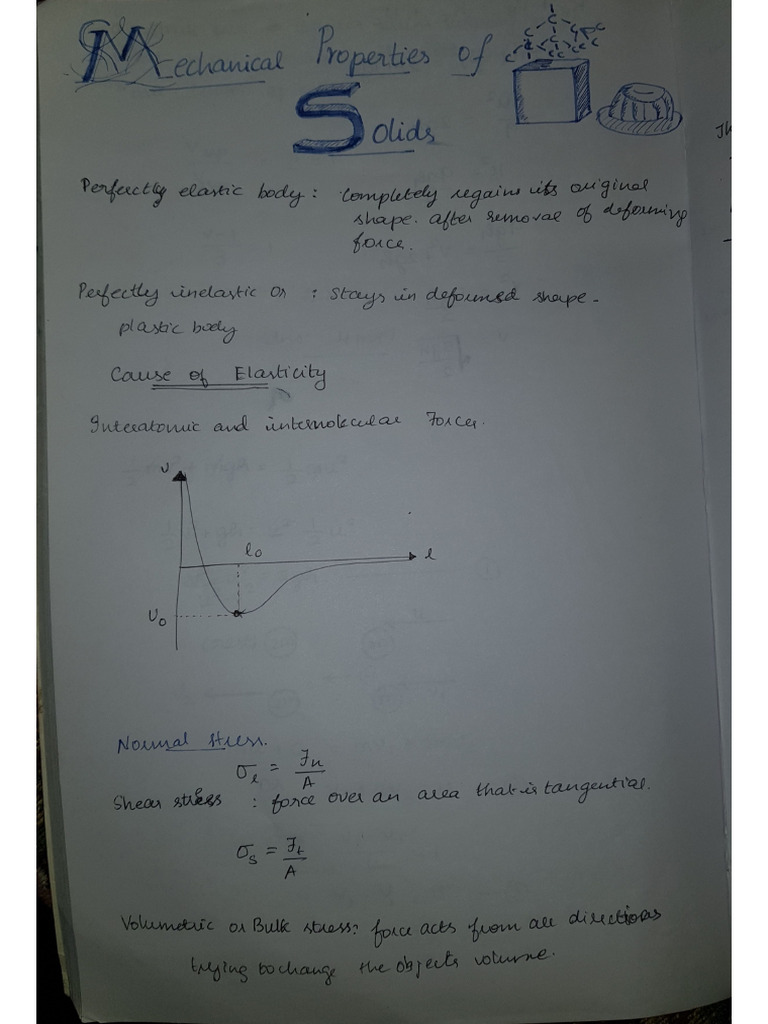 Mechanical Properties of
Solids
Perfectly elastic body : Completely regains its original
shape. after removal of deforming
force.
Perfectly inelastic or : Stays in deformed shape.
plastic body
Cause of Elasticity
Interatomic and intermolecular Forces.
U
l₀
l
U₀
Normal stress.
σₗ = Fₙ/A
Shear stress : force over an area that is tangential.
σₛ = Fₜ/A
Volumetric or Bulk stress: force acts from all directions
trying to change the objects volume.